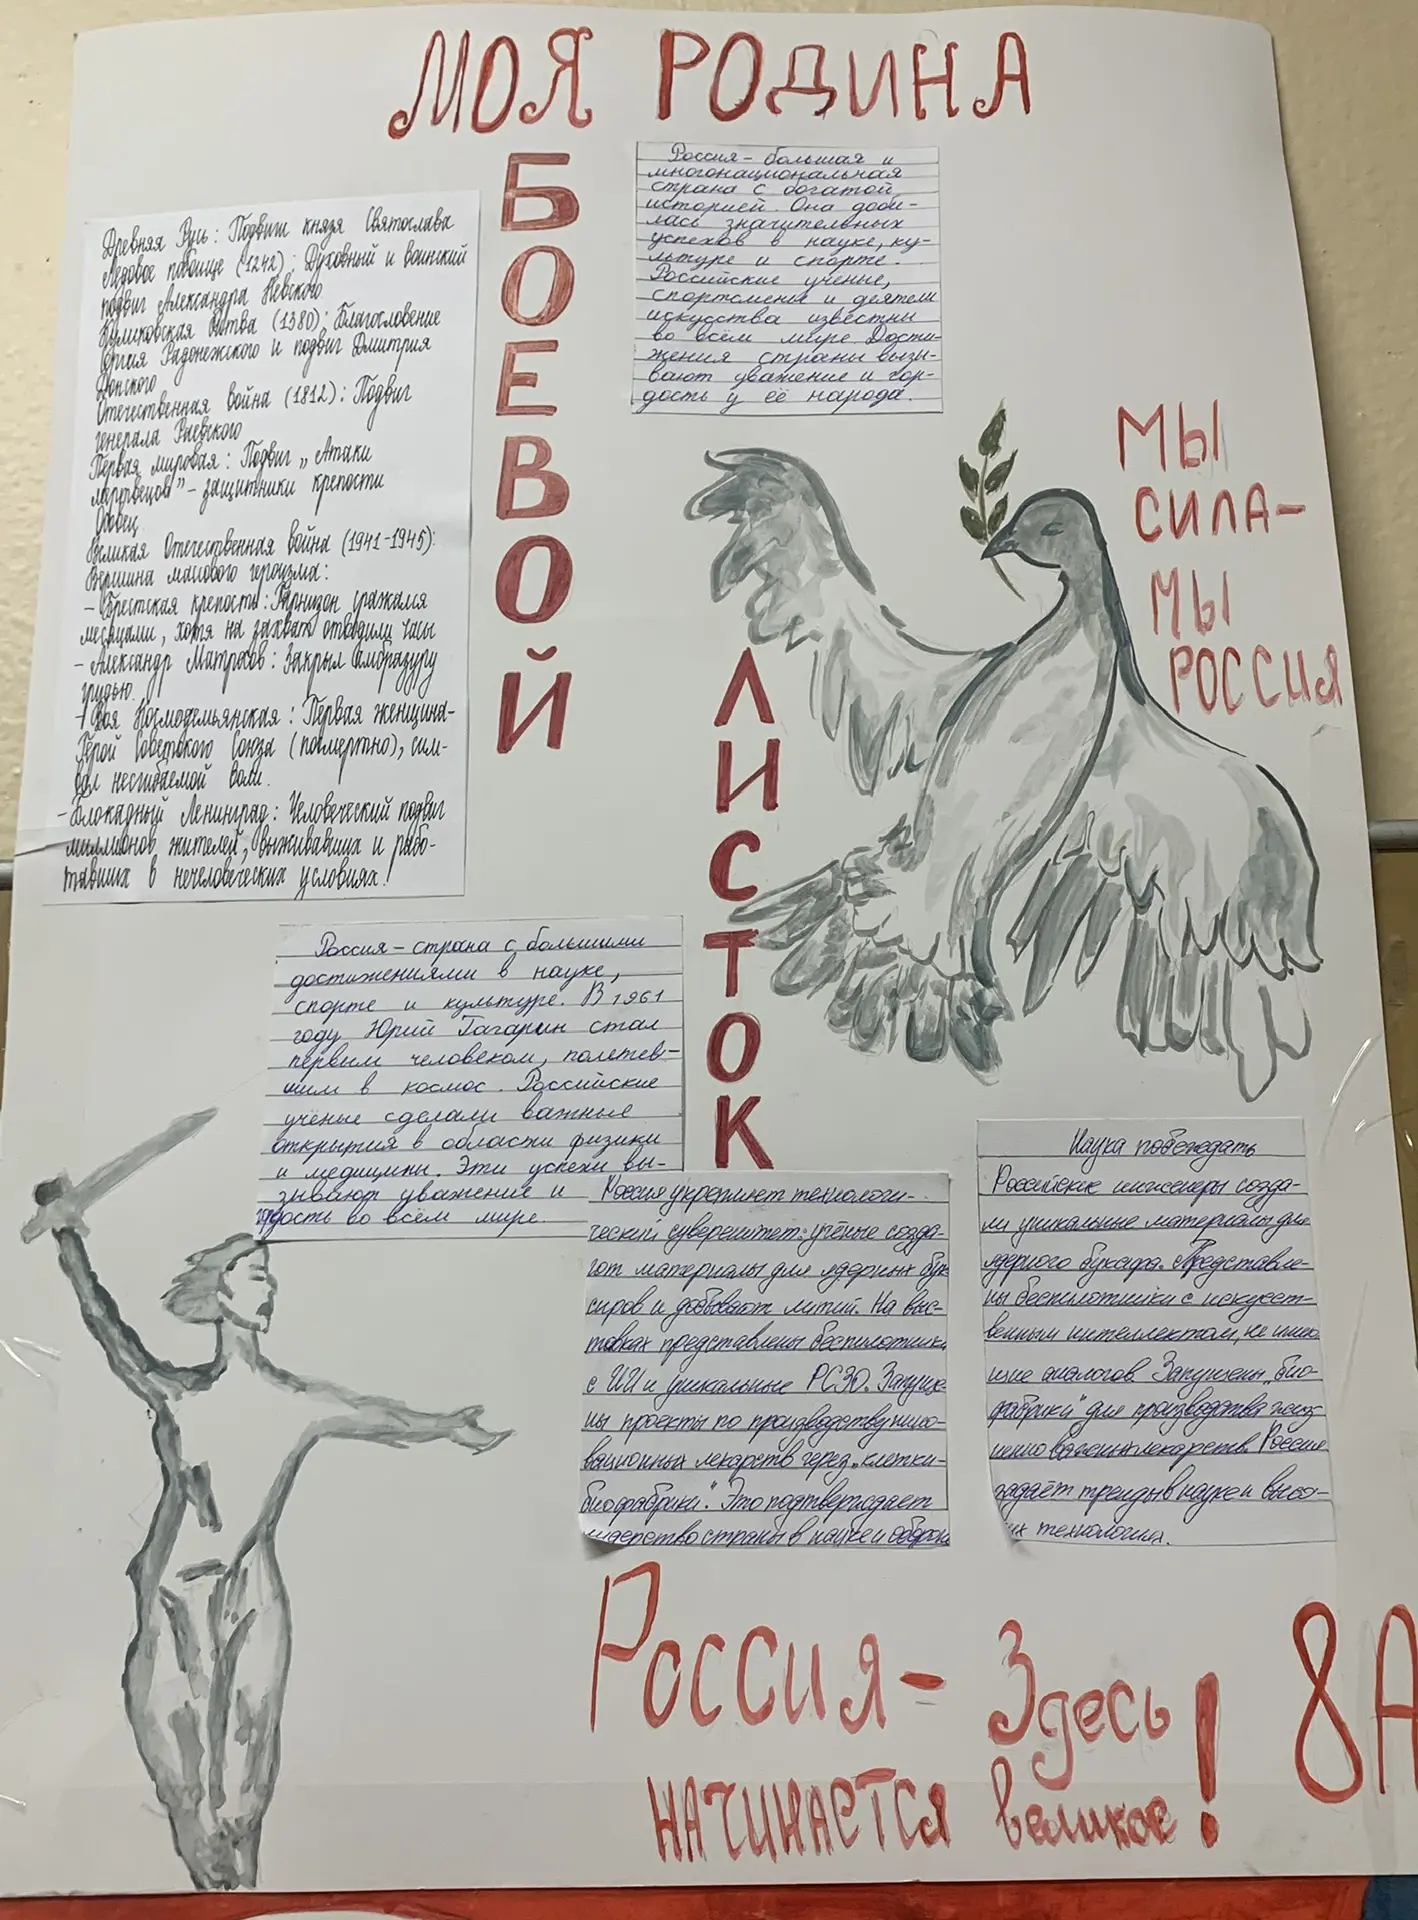 МОЯ РОДИНА
БОЕВОЙ
ЛИСТОК
Древняя Русь: Подвиги князя Святослава
Ледовое побоище (1242): Духовный и воинский
подвиг Александра Невского
Куликовская битва (1380): Благословение
Сергия Радонежского и подвиг Дмитрия
Донского
Отечественная война (1812): Подвиг
генерала Раевского
Первая мировая: Подвиг „Атаки
мертвецов" - защитники крепости
Осовец
Великая Отечественная война (1941-1945):
Вершина массового героизма:
- Брестская крепость: Гарнизон сражался
месяцами, хотя на захват отводили часы
- Александр Матросов: Закрыл амбразуру
грудью.
- Зоя Космодемьянская: Первая женщина-
Герой Советского Союза (посмертно), сим-
вол несгибаемой воли.
- Блокадный Ленинград: Человеческий подвиг
миллионов жителей, выживавших и рабо-
тавших в нечеловеческих условиях!
Россия - большая и
многонациональная
страна с богатой
историей. Она доби-
лась значительных
успехов в науке, ку-
льтуре и спорте.
Российские учёные,
спортсмены и деятели
искусства известны
во всём мире. Дости-
жения страны вызы-
вают уважение и гор-
дость у её народа.
МЫ
СИЛА-
МЫ
РОССИЯ
Россия - страна с большими
достижениями в науке,
спорте и культуре. В 1961
году Юрий Гагарин стал
первым человеком, полетев-
шим в космос. Российские
учёные сделали важные
открытия в области физики
и медицины. Эти успехи вы-
зывают уважение и
гордость во всём мире.
Россия укрепляет технологи-
ческий суверенитет: учёные созда-
ют материалы для ядерных бук-
сиров и добывают литий. На выс-
тавках представлены беспилотники
с ИИ и уникальные РСЗО. Запуще-
ны проекты по производству инно-
вационных лекарств через „клетки-
биофабрики". Это подтверждает
лидерство страны в науке и обороне
Наука побеждать
Российские инженеры созда-
ли уникальные материалы для
ядерного буксира. Представле-
ны беспилотники с искусст-
венным интеллектом, не имею
щие аналогов. Запущены „био-
фабрики" для производства жиз
ненно важных лекарств. Россия
задаёт тренды в науке и высо-
ких технологиях.
Россия - Здесь
НАЧИНАЕТСЯ великое!
8А